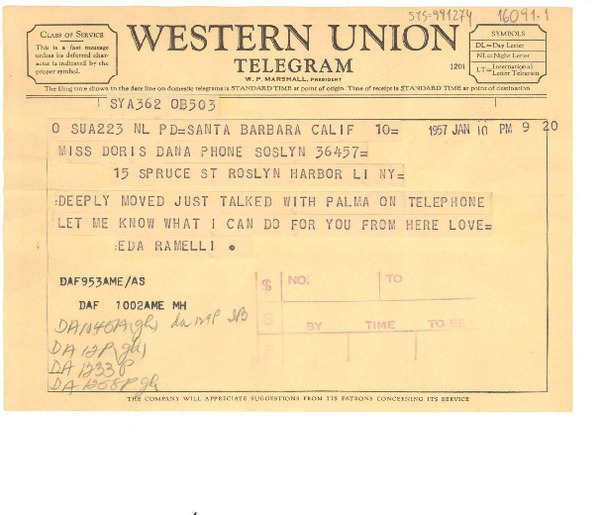 SYS=991274 16091.1
CLASS OF SERVICE
This is a fast message
unless its deferred char-
acter is indicated by the
proper symbol.
WESTERN UNION
TELEGRAM
W. P. MARSHALL, PRESIDENT
1201
SYMBOLS
DL=Day Letter
NL=Night Letter
LT=International
Letter Telegram
The filing time shown in the date line on domestic telegrams is STANDARD TIME at point of origin. Time of receipt is STANDARD TIME at point of destination
SYA362 OB503
O SUA223 NL PD=SANTA BARBARA CALIF 10= 1957 JAN 10 PM 9 20
MISS DORIS DANA PHONE SOSLYN 36457=
15 SPRUCE ST ROSLYN HARBOR LI NY=
:DEEPLY MOVED JUST TALKED WITH PALMA ON TELEPHONE
LET ME KNOW WHAT I CAN DO FOR YOU FROM HERE LOVE=
:EDA RAMELLI .
DAF953AME/AS
DAF 1002AME MH
DA 12P (gh)
DA 1233P
DA 1258P gh
$ NO. TO
S BY TIME TO BE
F
THE COMPANY WILL APPRECIATE SUGGESTIONS FROM ITS PATRONS CONCERNING ITS SERVICE